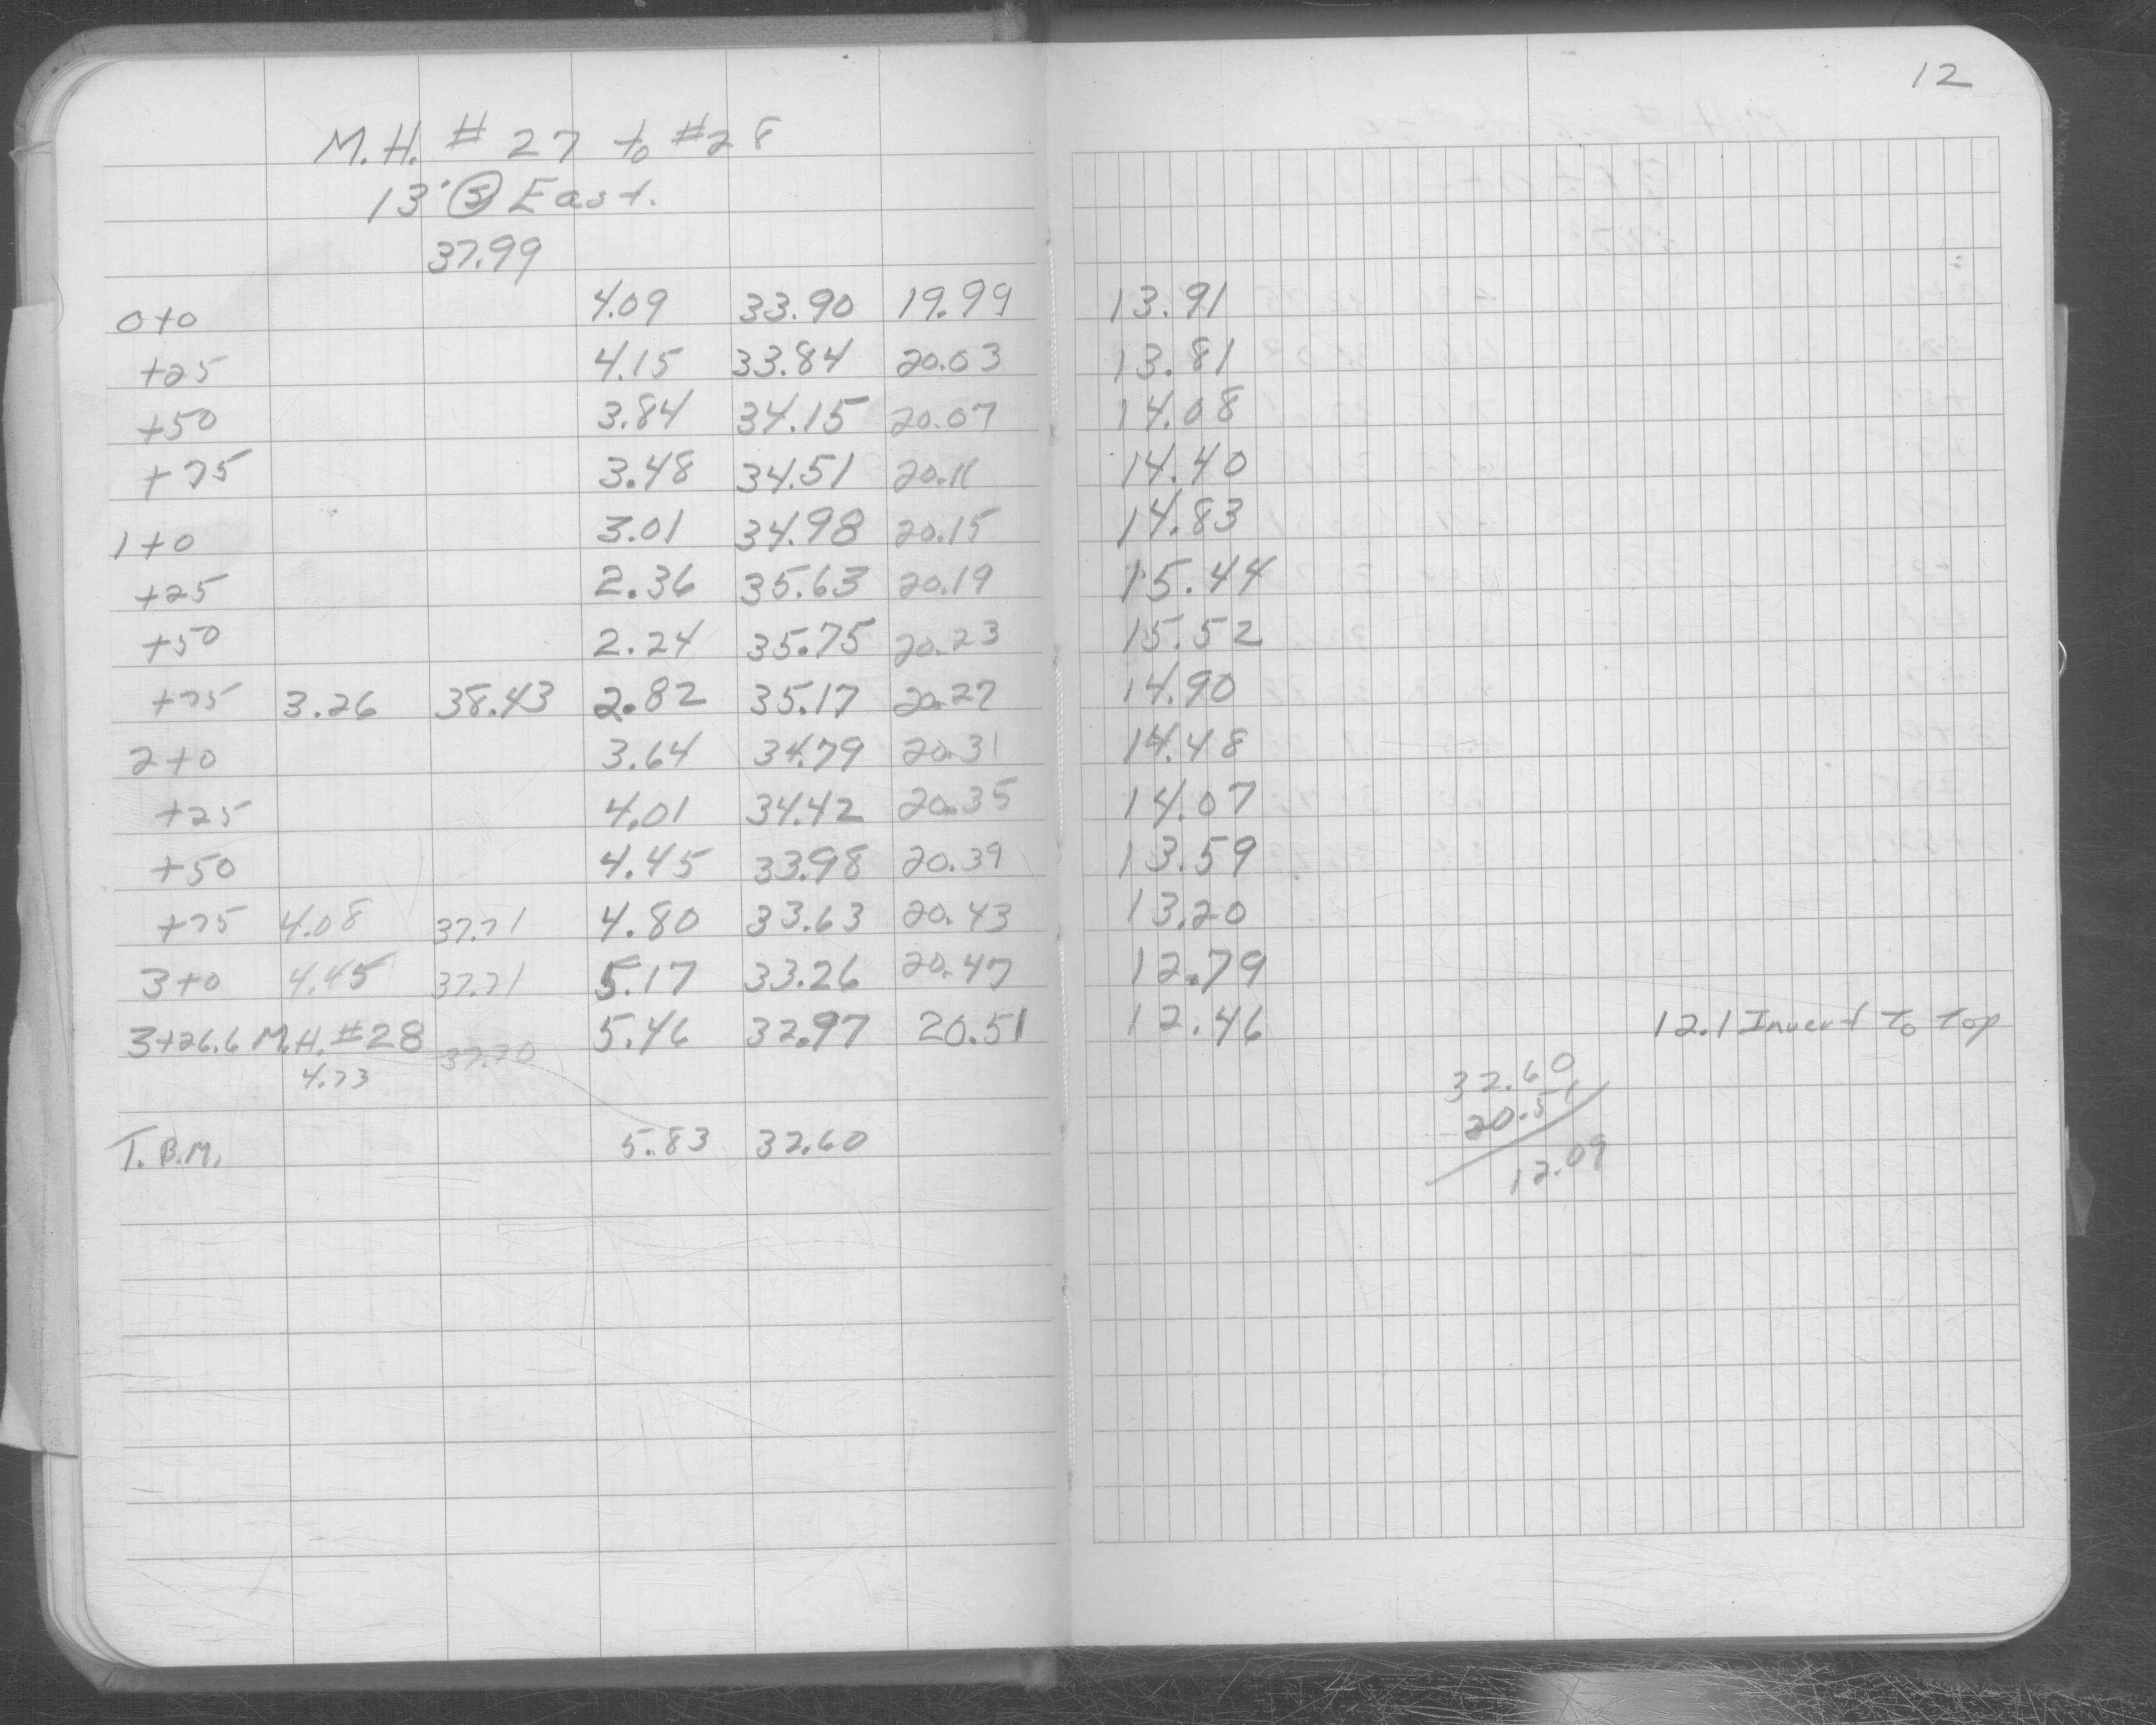 12
M.H. # 27 to #28
13' Ⓢ East.
37.99
0+0 4.09 33.90 19.99 13.91
+25 4.15 33.84 20.03 13.81
+50 3.84 34.15 20.07 14.08
+75 3.48 34.51 20.11 14.40
1+0 3.01 34.98 20.15 14.83
+25 2.36 35.63 20.19 15.44
+50 2.24 35.75 20.23 15.52
+75 3.26 38.43 2.82 35.17 20.27 14.90
2+0 3.64 34.79 20.31 14.48
+25 4.01 34.42 20.35 14.07
+50 4.45 33.98 20.39 13.59
+75 4.08 37.71 4.80 33.63 20.43 13.20
3+0 4.45 37.71 5.17 33.26 20.47 12.79
3+26.6 M.H. #28 37.70 5.46 32.97 20.51 12.46 12.1 Invert To Top
4.73
32.60
20.51
12.09
T.B.M. 5.83 32.60